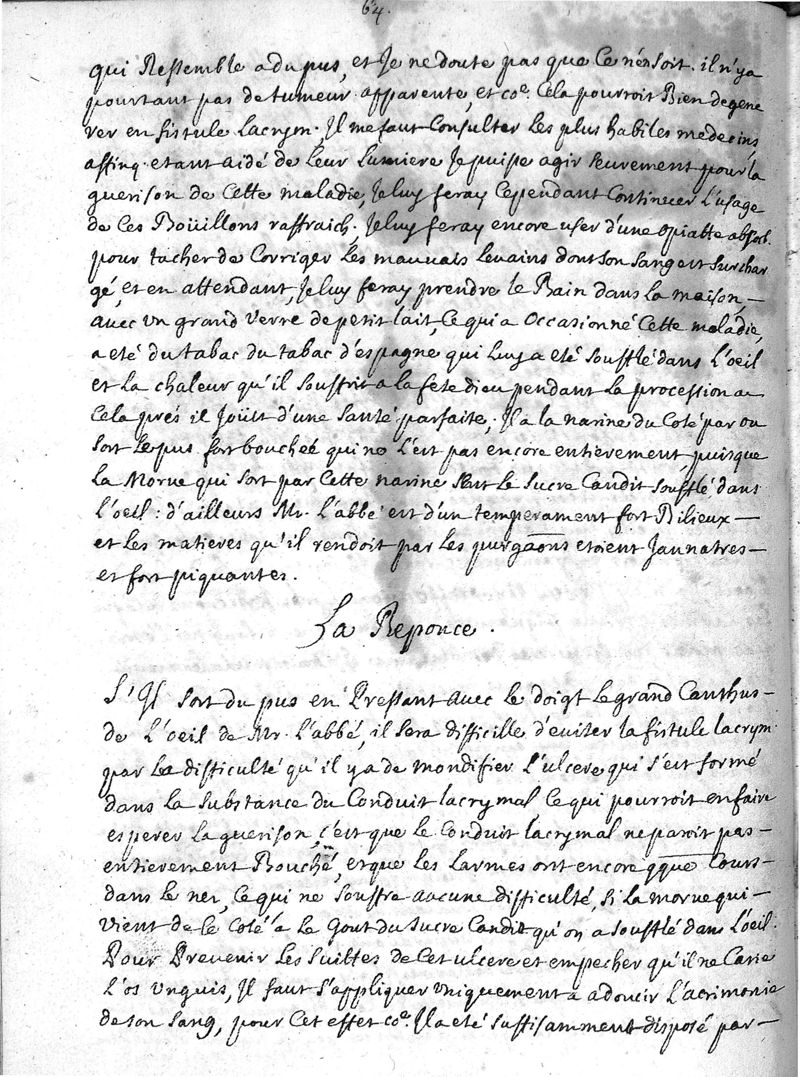 64.
qui Ressemble a du pus, et Je ne doute pas que Ce n'en soit. il n'y a
pourtant pas de tumeur apparente, et co^e. Cela pourroit Bien degene
rer en fistule Lacrym. Il me faut Consulter Les plus habiles medecins,
affinq. etant aidé de Leur Lumiere Je puisse agir seurement pour la
guerison de Cette maladie, Je luy feray Cependant Continuer L'usage
de Ces Boüillons raffraich. Je luy feray encore user d'une opiatte absorb.
pour tacher de Corriger Les mauvais Levains dont son sang est surchar
gé, et en attendant, Je luy feray prendre le Bain dans La maison, —
avec un grand verre de petit lait, Ce qui a occasionné Cette maladie,
a eté du tabac du tabac d'espagne qui Luy a eté soufflé dans L'oeil
et La chaleur qu'il souffrit a la fete dieu pendant La procession a
Cela prés il Joüit d'une santé parfaite, Il a la narine du Coté par ou
sort Le pus fort bouchée qui ne L'est pas encore entierement, puisque
La Morve qui sort par Cette narine sent Le sucre Candit soufflé dans
L'oeil : d'ailleurs Mr. L'abbé est d'un temperament fort Bilieux —
et Les matieres qu'il rendoit par Les purgaons etoient Jaunatres —
et fort piquantes.
La Reponce.
S'Il sort du pus en Pressant avec le doigt Le grand Canthus —
de L'oeil de Mr. L'abbé, il sera difficille d'eviter la fistule lacrym.
par La difficulté qu'il y a de mondifier L'ulcere qui s'est formé
dans La substance du Conduit lacrymal Ce qui pourroit en faire
esperer La guerison, c'est que Le Conduit lacrymal ne paroit pas —
entierement Bouché, et que les Larmes ont encore qque Cours —
dans le nez, Ce qui ne souffre aucune difficulté, si La morve qui —
vient de Ce Coté a Le Gout du sucre Candit qu'on a soufflé dans L'oeil.
Pour Prevenir Les suittes de Cet ulcere et empecher qu'il ne Carie
L'os unguis, Il faut s'appliquer uniquement a adoucir L'acrimonie
de son sang, pour Cet effet co^e. Il a eté suffisamment disposé par —